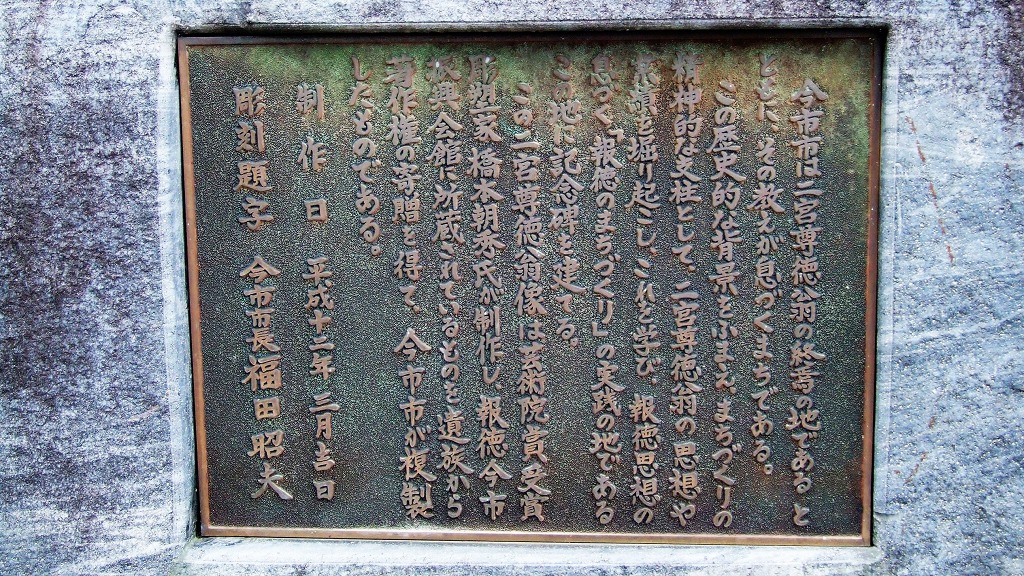 今市市は二宮尊徳翁の終焉の地であると
ともに、その教えが息づくまちである。
この歴史的な背景をふまえ、まちづくりの
精神的な支柱として、二宮尊徳翁の思想や
業績を堀り起こし、これを学び、報徳思想の
息づく「報徳のまちづくり」の実践の地である
この地に記念碑を建てる。
この二宮尊徳翁像は芸術院賞受賞
彫塑家橋本朝秀氏が制作し、報徳今市
振興会館に所蔵されているものを遺族から
著作権の寄贈を得て、今市市が複製
したものである。
制作日 平成十二年三月吉日
彫刻題字 今市市長福田昭夫